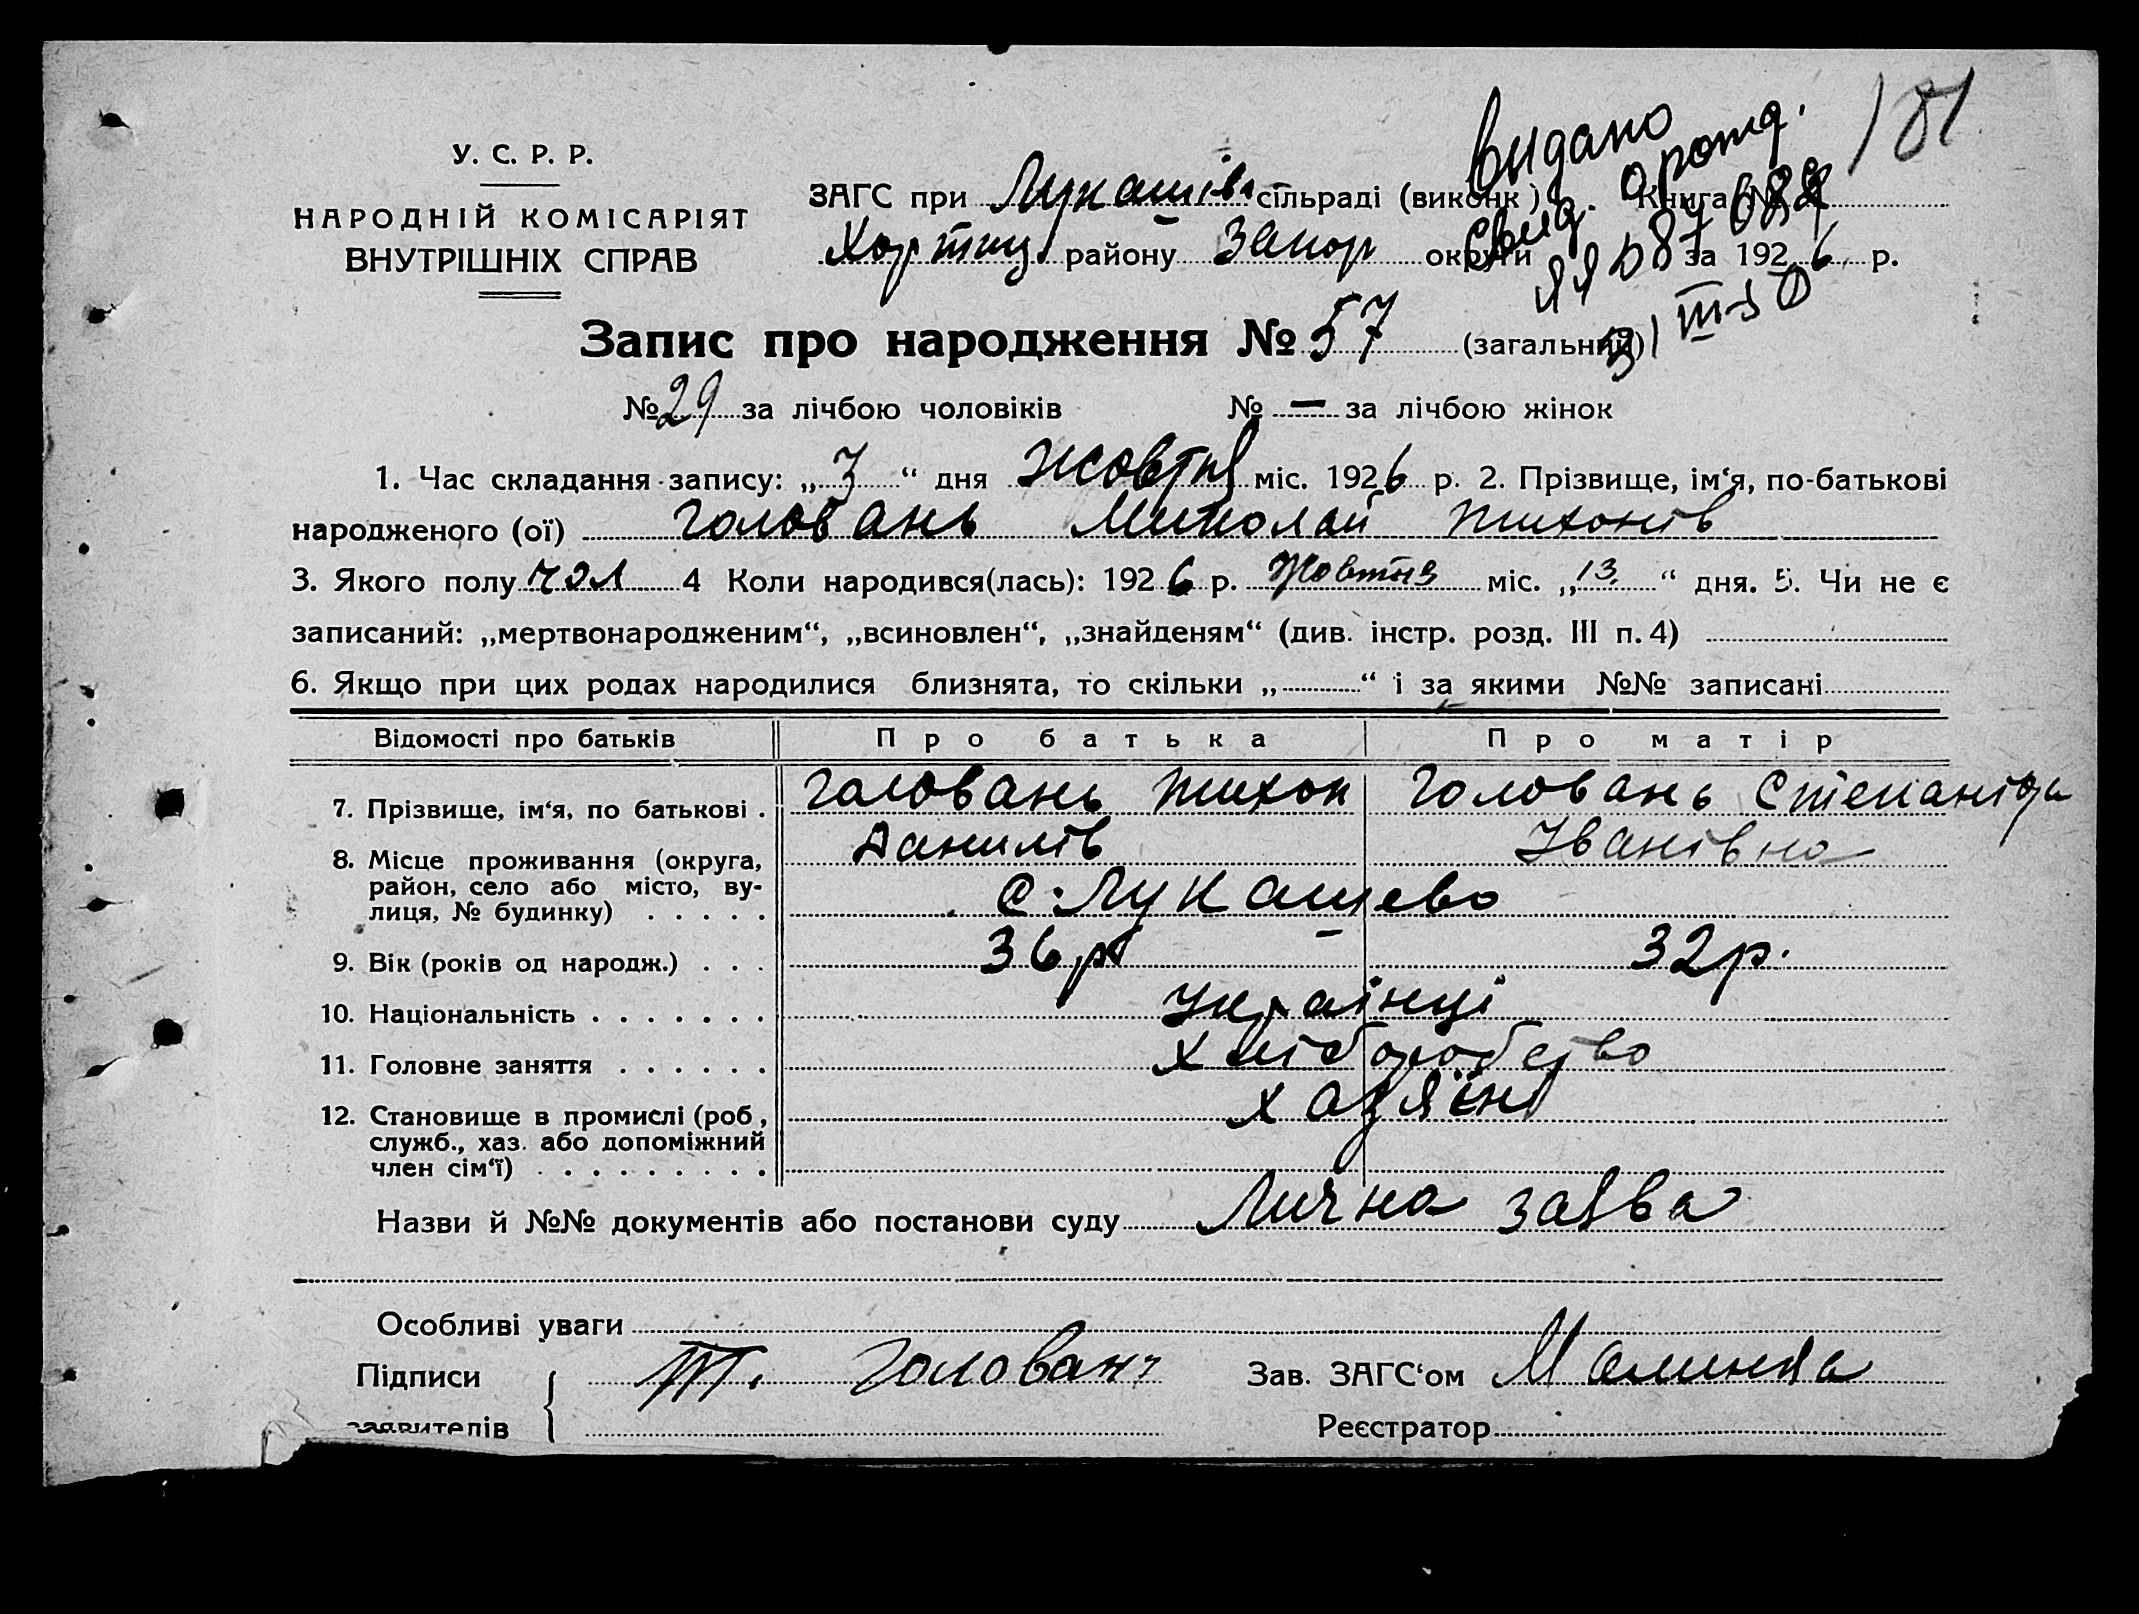 181
Видано
свид. о рожд.
31/III-50
У. С. Р. Р.
НАРОДНІЙ КОМІСАРІЯТ
ВНУТРІШНІХ СПРАВ
ЗАГС при Лукашів. сільраді (виконк.) Книга №
Хортиц. району Запор округи за 1926 р.
Запис про народження № 57 (загальний)
№ 29 за лічбою чоловіків № — за лічбою жінок
1. Час складання запису: „ “ дня Жовтня міс. 1926 р. 2. Прізвище, ім‘я, по-батькові
народженого (ої) Головань Миколай Тихонів
3. Якого полу чол 4 Коли народився(лась): 1926 р. Жовтня міс. „13.“ дня. 5. Чи не є
записаний: „мертвонародженим“, „всиновлен“, „знайденям“ (див. інстр. розд. III п. 4)
6. Якщо при цих родах народилися близнята, то скільки „ “ і за якими №№ записані
Відомості про батьків Про батька Про матір
7. Прізвище, ім‘я, по батькові . Головань Тихон Головань Степаніда
Данилів Іванівна
8. Місце проживання (округа,
район, село або місто, ву-
лиця, № будинку) . . . . . с. Лукашево
9. Вік (років од народж.) . . . 36 р. 32 р.
10. Національність . . . . . . . Українці
11. Головне заняття . . . . . . Хліборобство
12. Становище в промислі (роб., хазяїни
служб., хаз. або допоміжний
член сім‘ї) . . . . . . . . .
Назви й №№ документів або постанови суду Лична заява
Особливі уваги
Підписи Т. Головань Зав. ЗАГС‘ом
заявителів Реєстратор